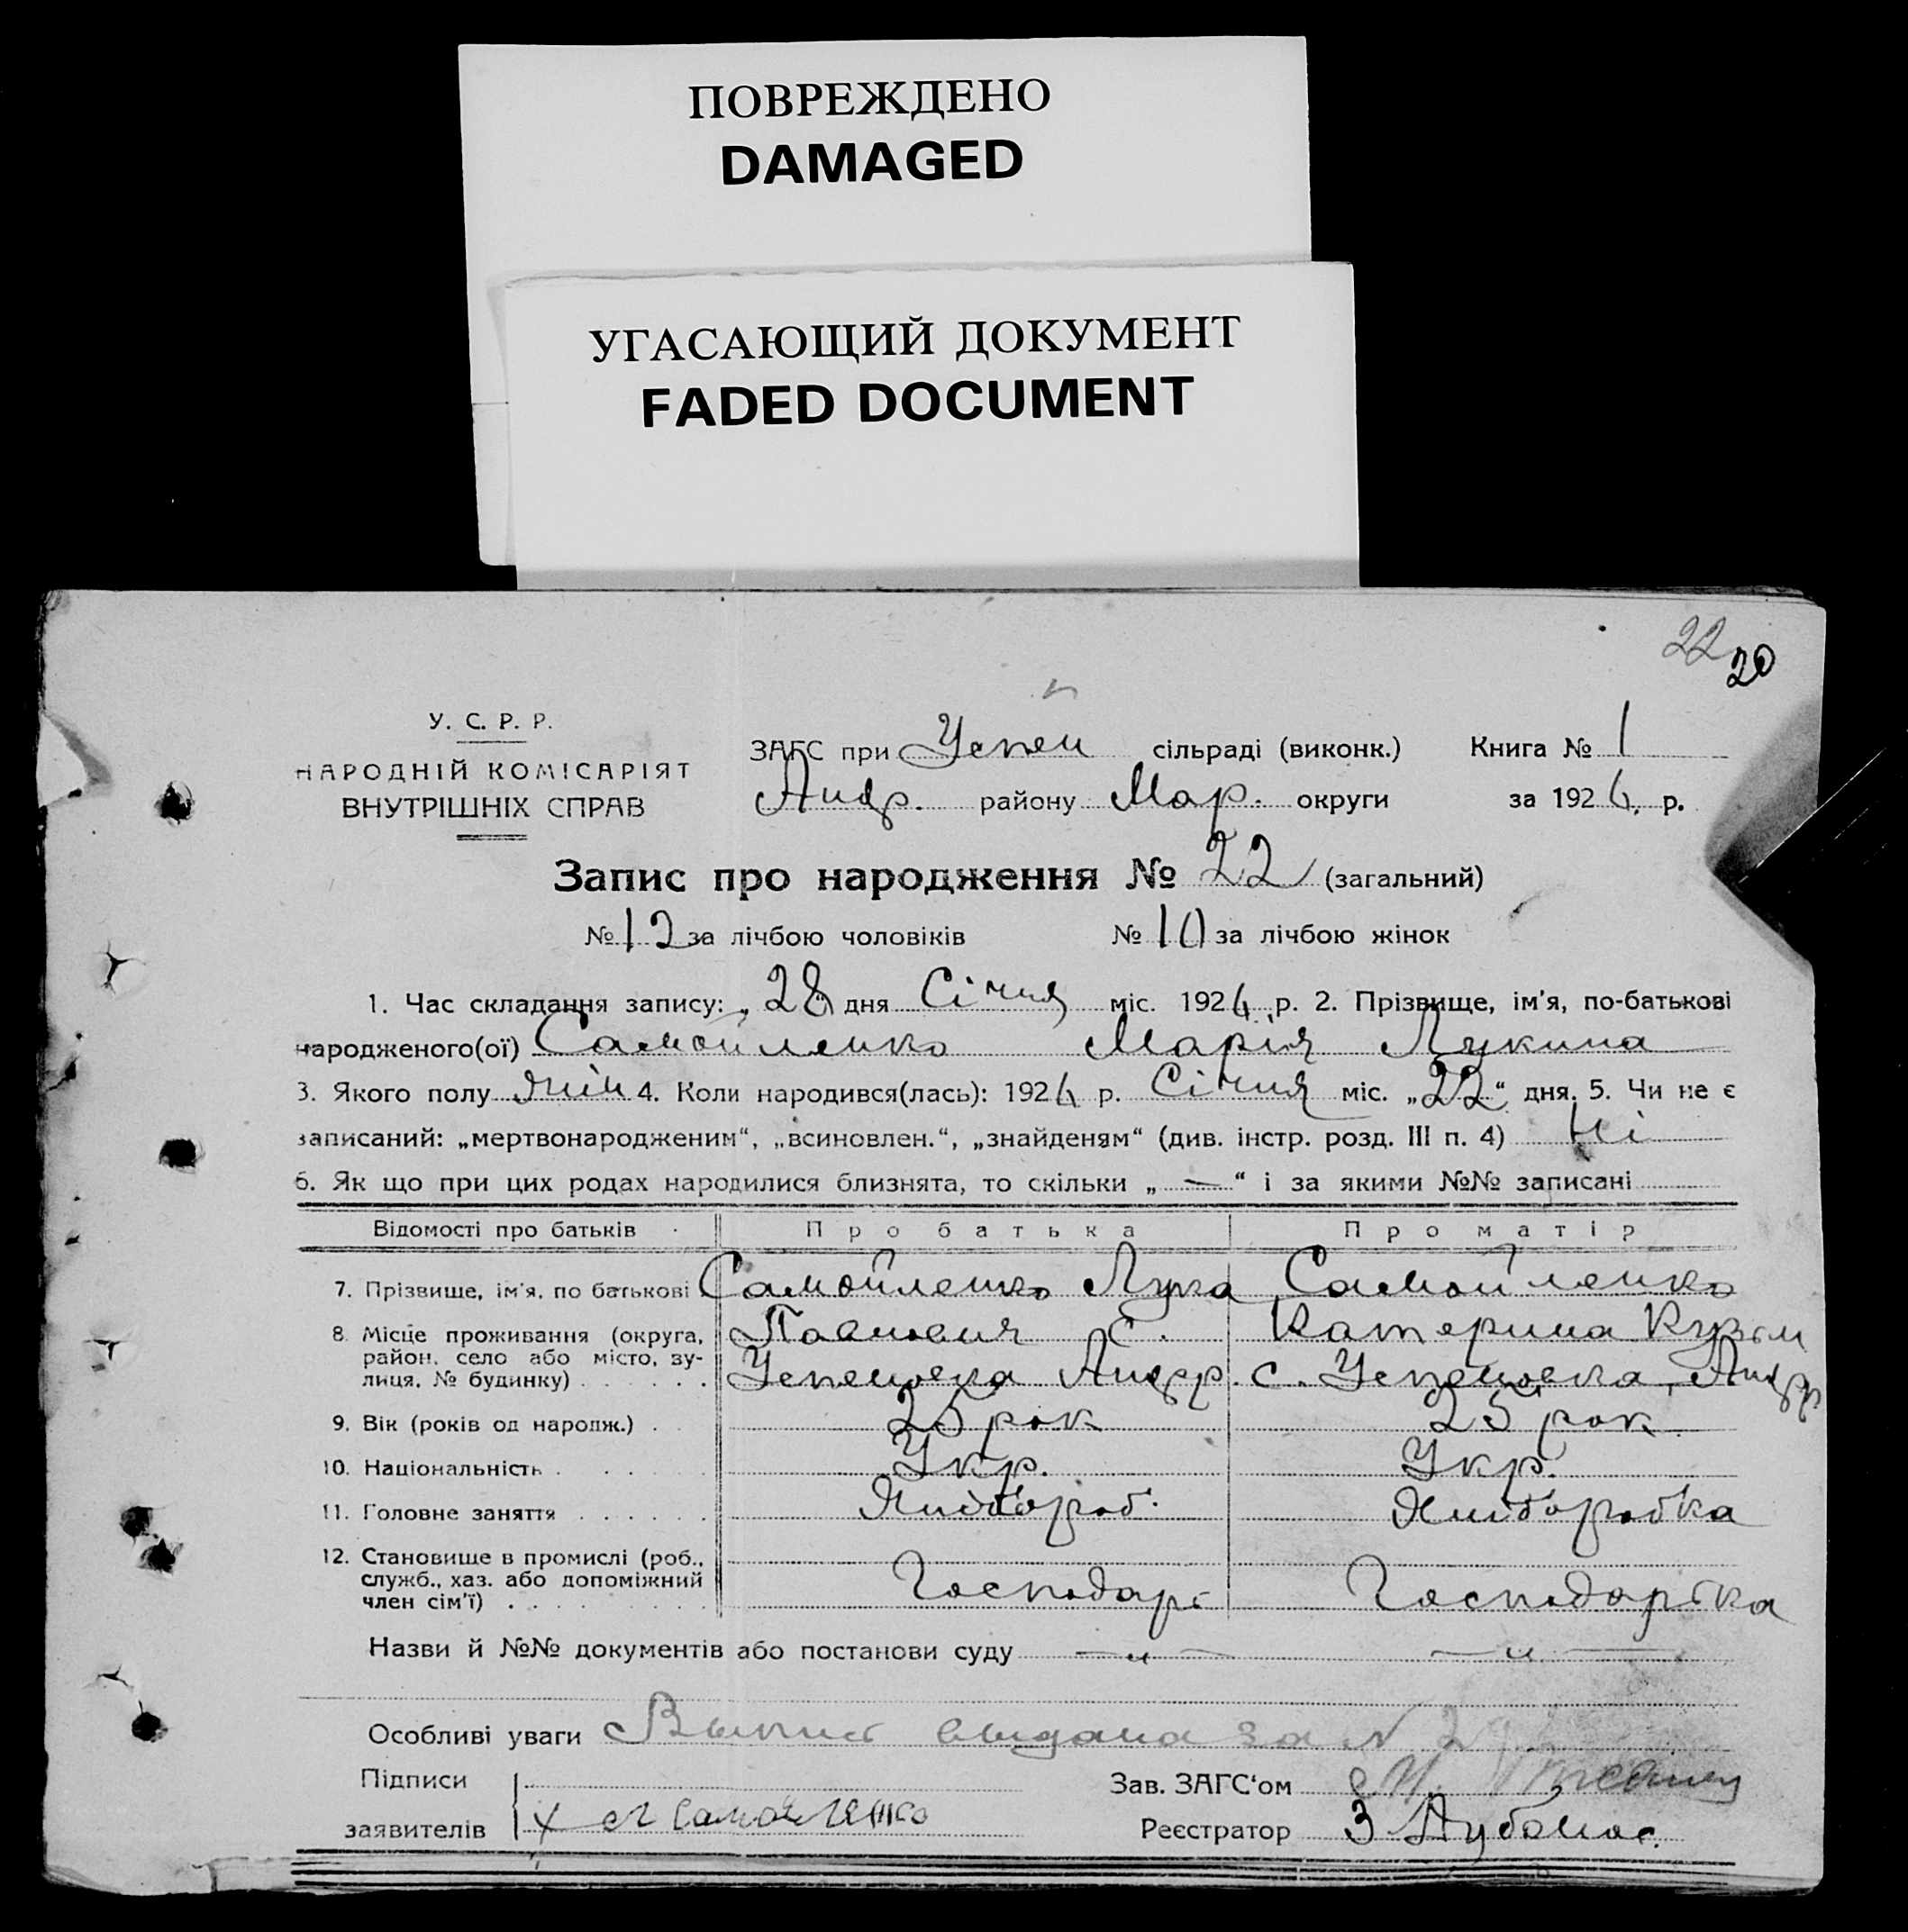 ПОВРЕЖДЕНО
DAMAGED
УГАСАЮЩИЙ ДОКУМЕНТ
FADED DOCUMENT
22 20
У. С. Р. Р.
НАРОДНІЙ КОМІСАРІЯТ
ВНУТРІШНІХ СПРАВ
ЗАГС при Успен сільраді (виконк.) Книга № 1
Андр. району Мар. округи за 192 р.
Запис про народження № 22 (загальний)
№ 12 за лічбою чоловіків № 10 за лічбою жінок
1. Час складання запису: „28“ дня Січня міс. 192 р. 2. Прізвище, ім'я, по-батькові
народженого(ої) Самойленко Марія Лукина
3. Якого полу жін 4. Коли народився(лась): 192 р. Січня міс. „22“ дня. 5. Чи не є
записаний: „мертвонародженим“, „всиновлен.“, „знайденям“ (див. інстр. розд. III п. 4) Ні
6. Як що при цих родах народилися близнята, то скільки „ — “ і за якими №№ записані
Відомості про батьків Про батька Про матір
7. Прізвище, ім'я, по батькові Самойленко Лука Самойленко
8. Місце проживання (округа, Павлович С. Катерина Кузьм
район, село або місто, ву-
лиця, № будинку) Успеновка Андр. с. Успеновка, Андр
9. Вік (років од народж.) 25 рок 25 рок
10. Національність Укр. Укр.
11. Головне заняття Хлібороб. Хліборобка
12. Становище в промислі (роб.,
служб., хаз. або допоміжний Господарь Господарька
член сім'ї)
Назви й №№ документів або постанови суду — „ — — „ —
Особливі уваги Выпись выдана за № 2
Підписи Зав. ЗАГС'ом
заявителів х Самойленко Реєстратор З